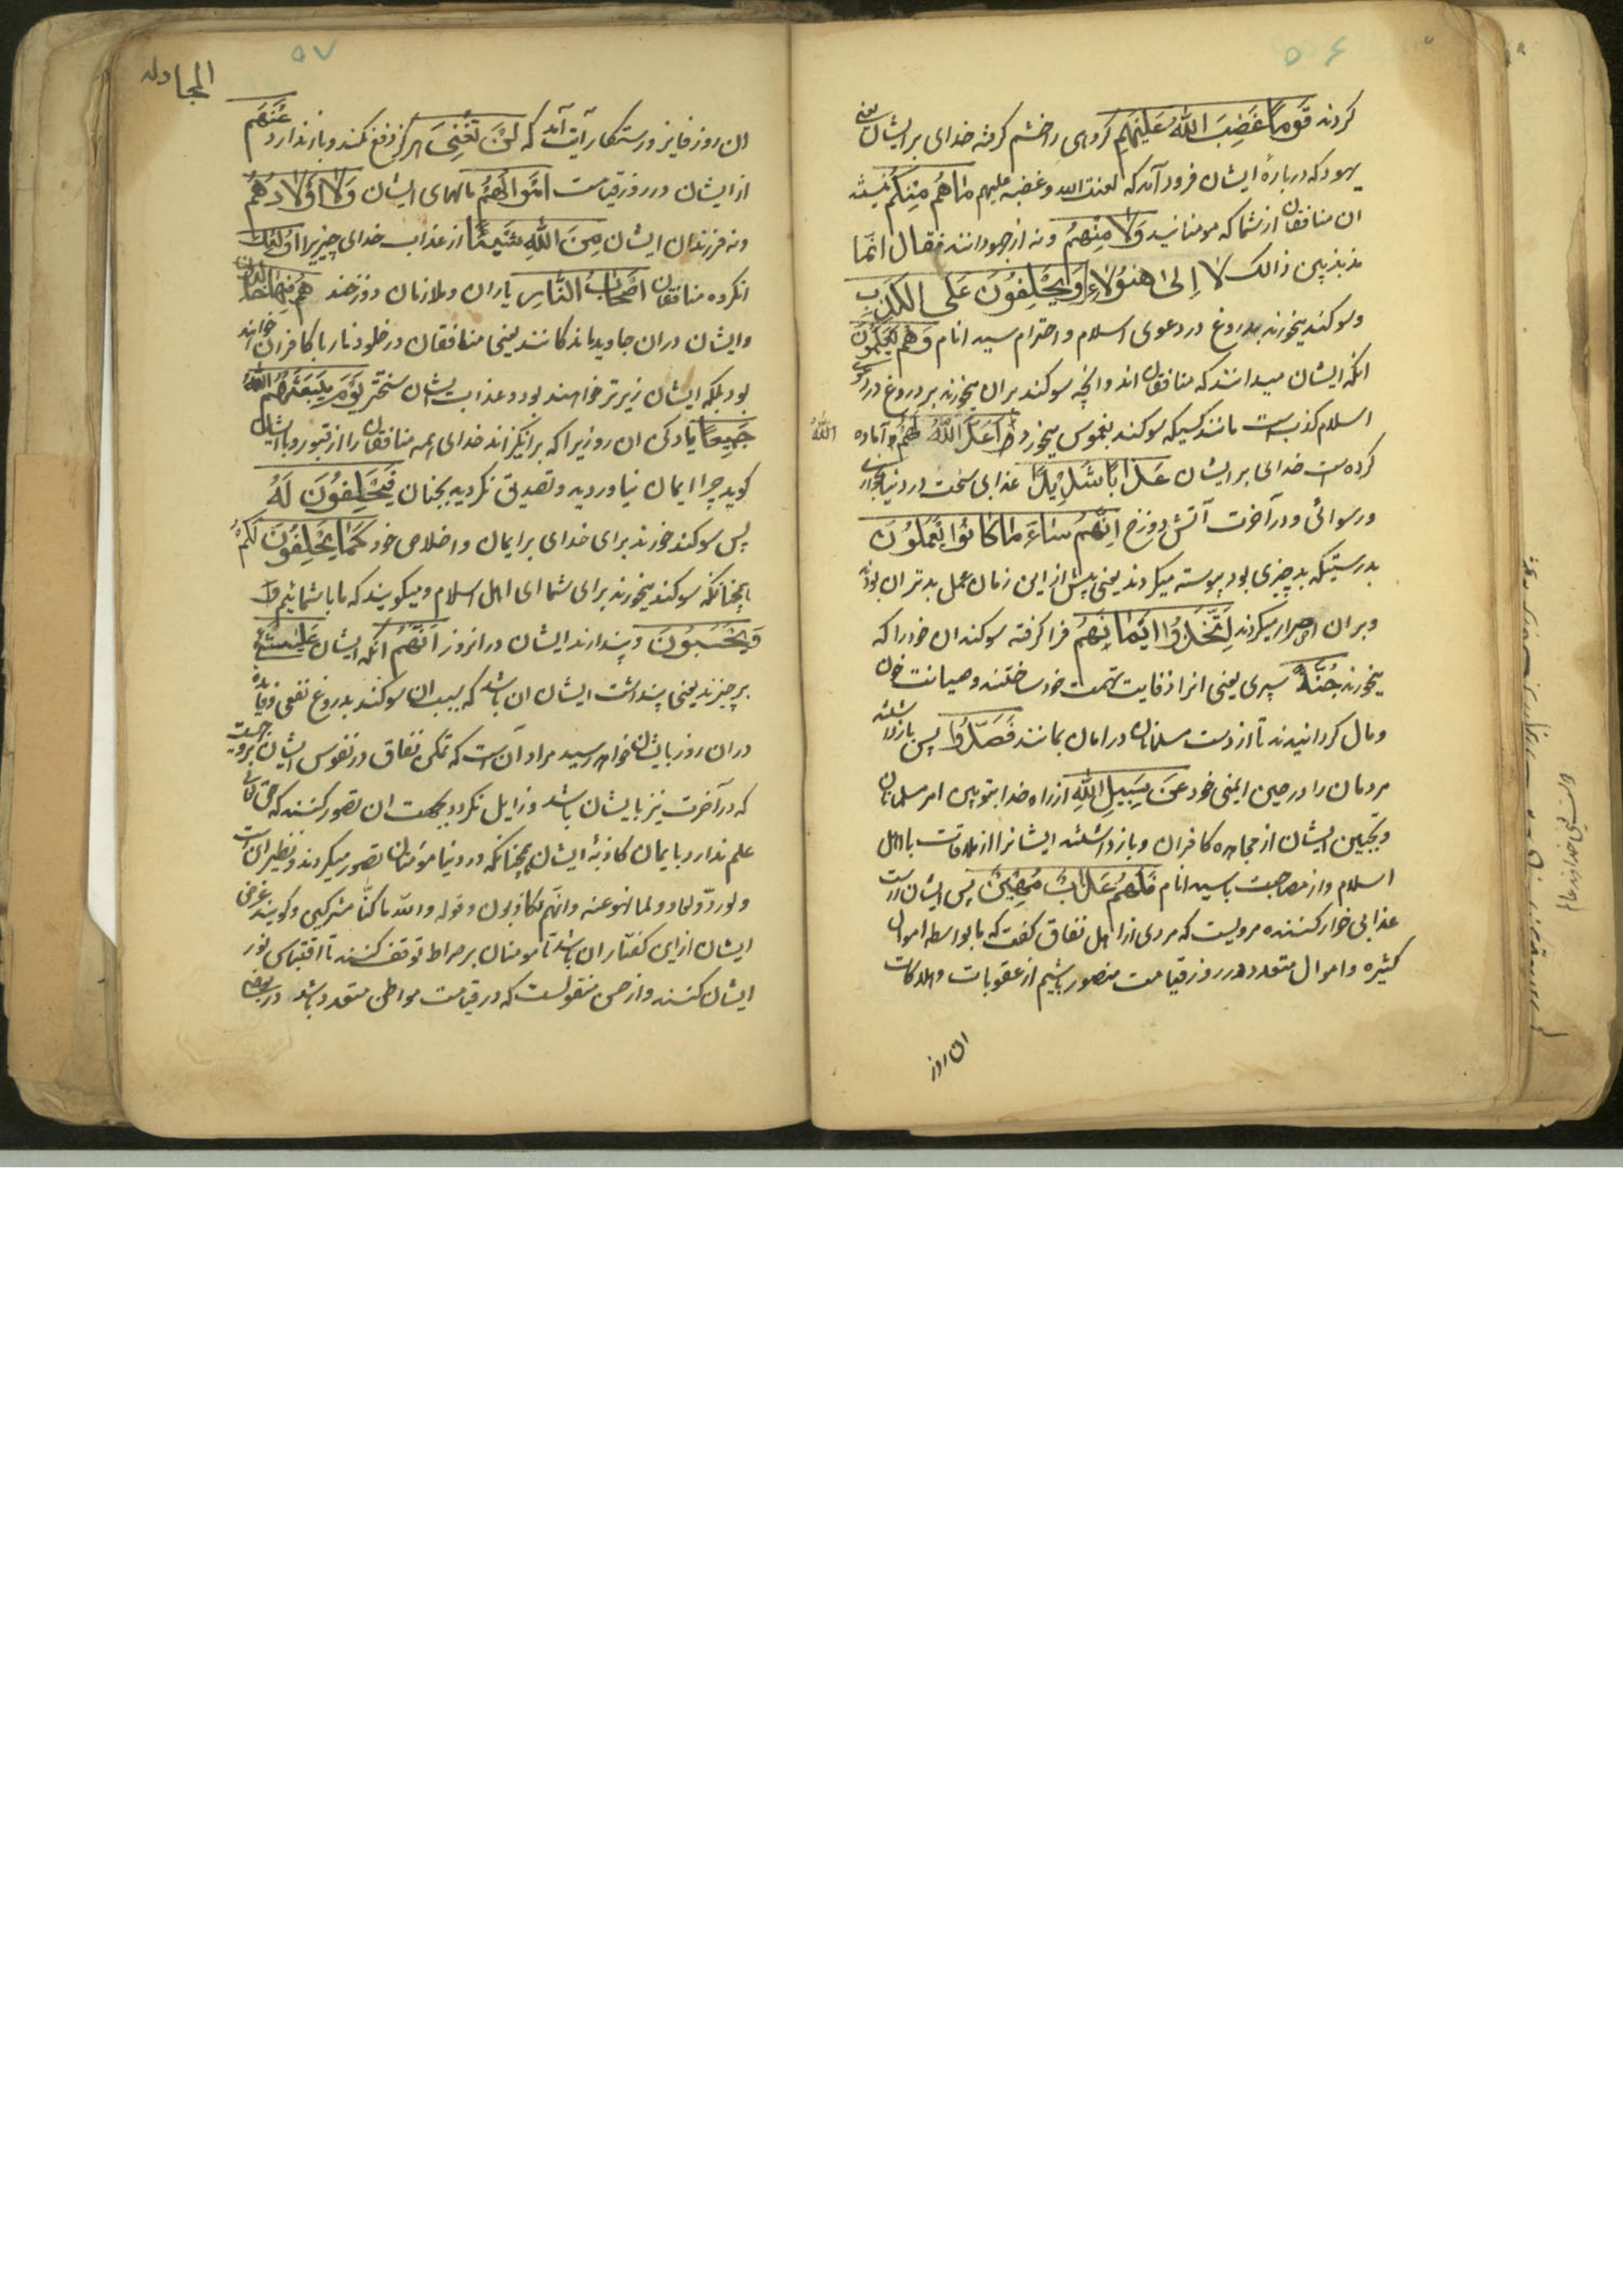 ۵۶
کردند قَومًا غَضِبَ اللّٰهُ عَلَیْهِمِ کروهی را خشم کرفته خدای بر ایشان یعنی
یهود که دربارهٔ ایشان فرود آمد که لعنت الله وغضبه علیهم مٰا هُم مِنْکُم نیستند
ان منافقان از شما که مومنانید وَلٰا مِنْهُم ونه از جهودانند فقال انّما
مذبذبین ذالک لا اِلیٰ هٰؤُلٰاءِ وَیَحْلِفُونَ عَلَی الکَذِبِ
وسوکند میخورند بدروغ در دعوی اسلام واحترام سید انام وَهُم یَعْلَمُونَ
انکه ایشان میدانند که منافقان اند وانچه سوکند بران میخورند بر دروغ در دعوی
اسلام کذب است مانند کسیکه سوکند بغموس میخورد اَعَدَّ اللّٰهُ لَهُم وآماده
اللّٰهُ
کرده است خدای بر ایشان عَذٰابًا شَدِیْدًا عذابی سخت در دنیا بخواری
ورسوائی ودر آخرت آتش دوزخ اِنَّهُم سٰاءَ مٰا کٰانُوا یَعْمَلُونَ
بدرستیکه بد چیزی بود پیوسته میکردند یعنی پیش از این زمان عمل بدتر ان بودند
وبران اصرار میکردند اِتَّخَذُوا اَیْمٰانَهُم فرا کرفته سوکندان خود را که
میخورند جُنَّةً سپری یعنی انرا وقایت تهمت خود ساختند وصیانت خون
ومال کردانیدند تا از دست مسلمانان در امان بمانند فَصَدُّوا پس بازداشتند
مردمان را در حین ایمنی خود عَن سَبِیلِ اللّٰهِ از راه خدا بتوهین امر مسلمانان
وبجبین ایشان از مجاهده کافران وبازداشتند ایشانرا از ملاقات با اهل
اسلام واز مصاحبت با سید انام فَلَهُم عَذٰابٌ مُهِیْنٌ پس ایشان راست
عذابی خوار کننده مرویست که مردی از اهل نفاق کفت که ما بواسطه اموال
کثیره واموال متعدده در روز قیامت منصور باشیم از عقوبات وهلاکات
ان روز
۵۷
المجادله
ان روز فایز ورستکار آیت آمد که لَنْ تُغْنِیَ هرکز دفع نکند وباز ندارد عَنْهُم
از ایشان در روز قیامت اَمْوٰالُهُمْ مالهای ایشان وَلٰا اَوْلٰادُهُمْ
ونه فرزندان ایشان مِنَ اللّٰهِ شَیْئًا از عذاب خدای چیزیرا اُولٰئِکَ
انکروه منافقان اَصْحٰابُ النّٰارِ یاران وملازمان دوزخند هُم فِیْهٰا خٰالِدُونَ
وایشان دران جاوید ماندکانند یعنی منافقان در خلود نار با کافران خواهند
بود بلکه ایشان زیرتر خواهند بود وعذاب ایشان سختتر یَوْمَ یَبْعَثُهُمُ اللّٰهُ
جَمِیعًا یاد کن ان روزیرا که برانکیزاند خدای همه منافقان را از قبور وبا ایشان
کوید چرا ایمان نیاوردید وتصدیق نکردید بجنان فَیَحْلِفُونَ لَهُ
پس سوکند خورند برای خدای بر ایمان واخلاص خود کَمٰا یَحْلِفُونَ لَکُمْ
همچنانکه سوکند میخورند برای شما ای اهل اسلام ومیکویند که ما با شمائیم
وَیَحْسَبُونَ وپندارند ایشان در انروز اَنَّهُمْ انکه ایشان عَلیٰ شَیْءٍ
بر چیزند یعنی پنداشت ایشان ان باشد که بسبب ان سوکند بدروغ نفعی وفایده
دران روز بایشان خواهد رسید مراد آن است که تمکن نفاق در نفوس ایشان
که در آخرت نیز با ایشان باشد وزایل نکردد بجهت ان تصور کنند که حق تعالی
علم ندارد بایمان کاذبهٔ ایشان همچنانکه در دنیا مؤمنان تصور میکردند ونظیر این است
ولو ردّوا لعادوا لما نهوا عنه وانّهم لکاذبون وقوله والله ما کنّا مشرکین وکویند غرض
ایشان از این کفتار ان باشد تا مومنان بر صراط توقف کنند تا اقتباس نور
ایشان کنند واز حسن منقولست که در قیامت مواطن متعدد باشد در بعضی